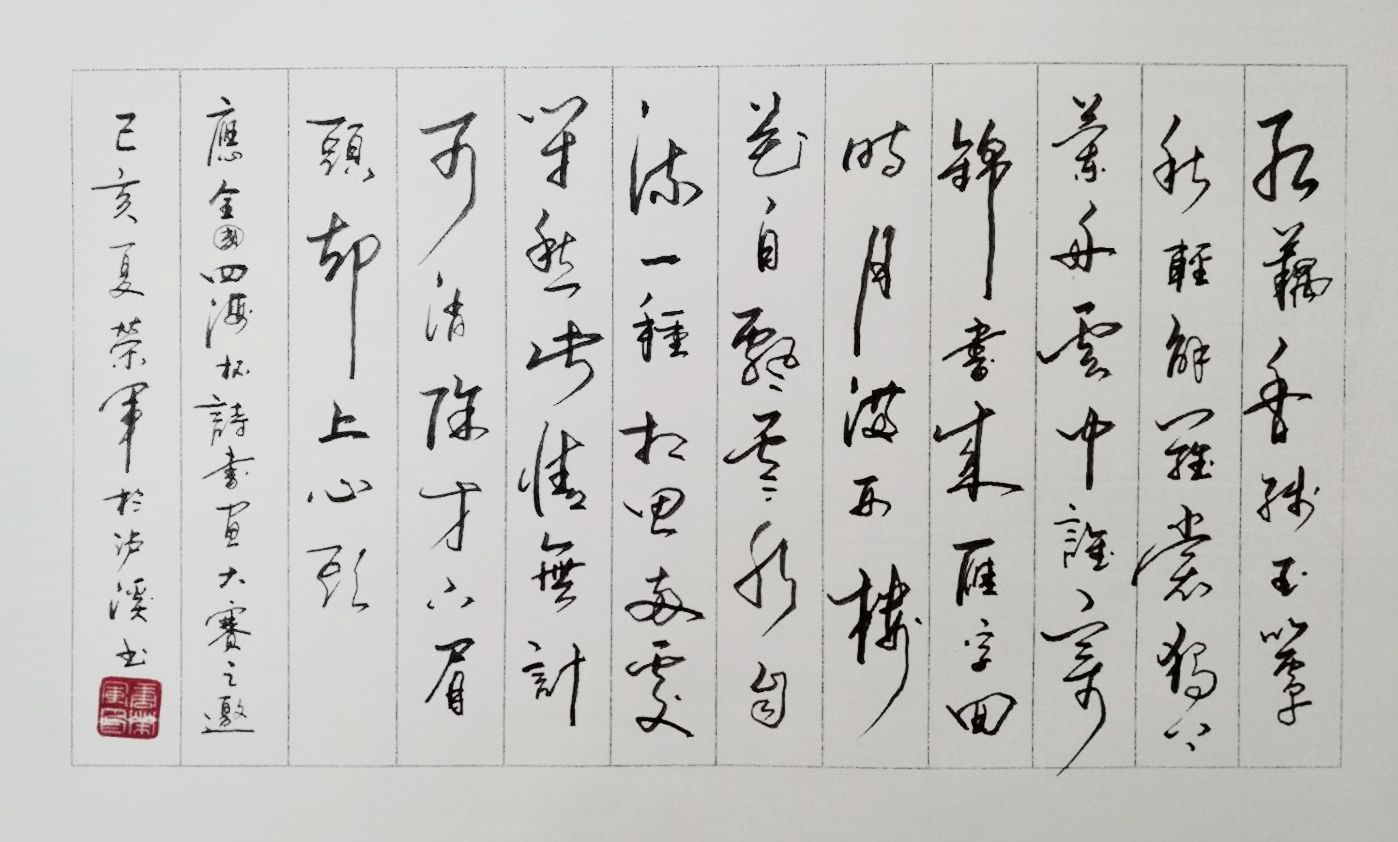 红藕香残玉簟
秋輕解羅裳獨上
蘭舟雲中誰寄
錦書來雁字回
時月滿西樓
花自飄零水自
流一種相思兩處
閑愁此情無計
可消除才下眉
頭却上心頭
應全國四海杯詩書画大賽之邀
己亥夏榮軍於泸溪书
唐榮軍印